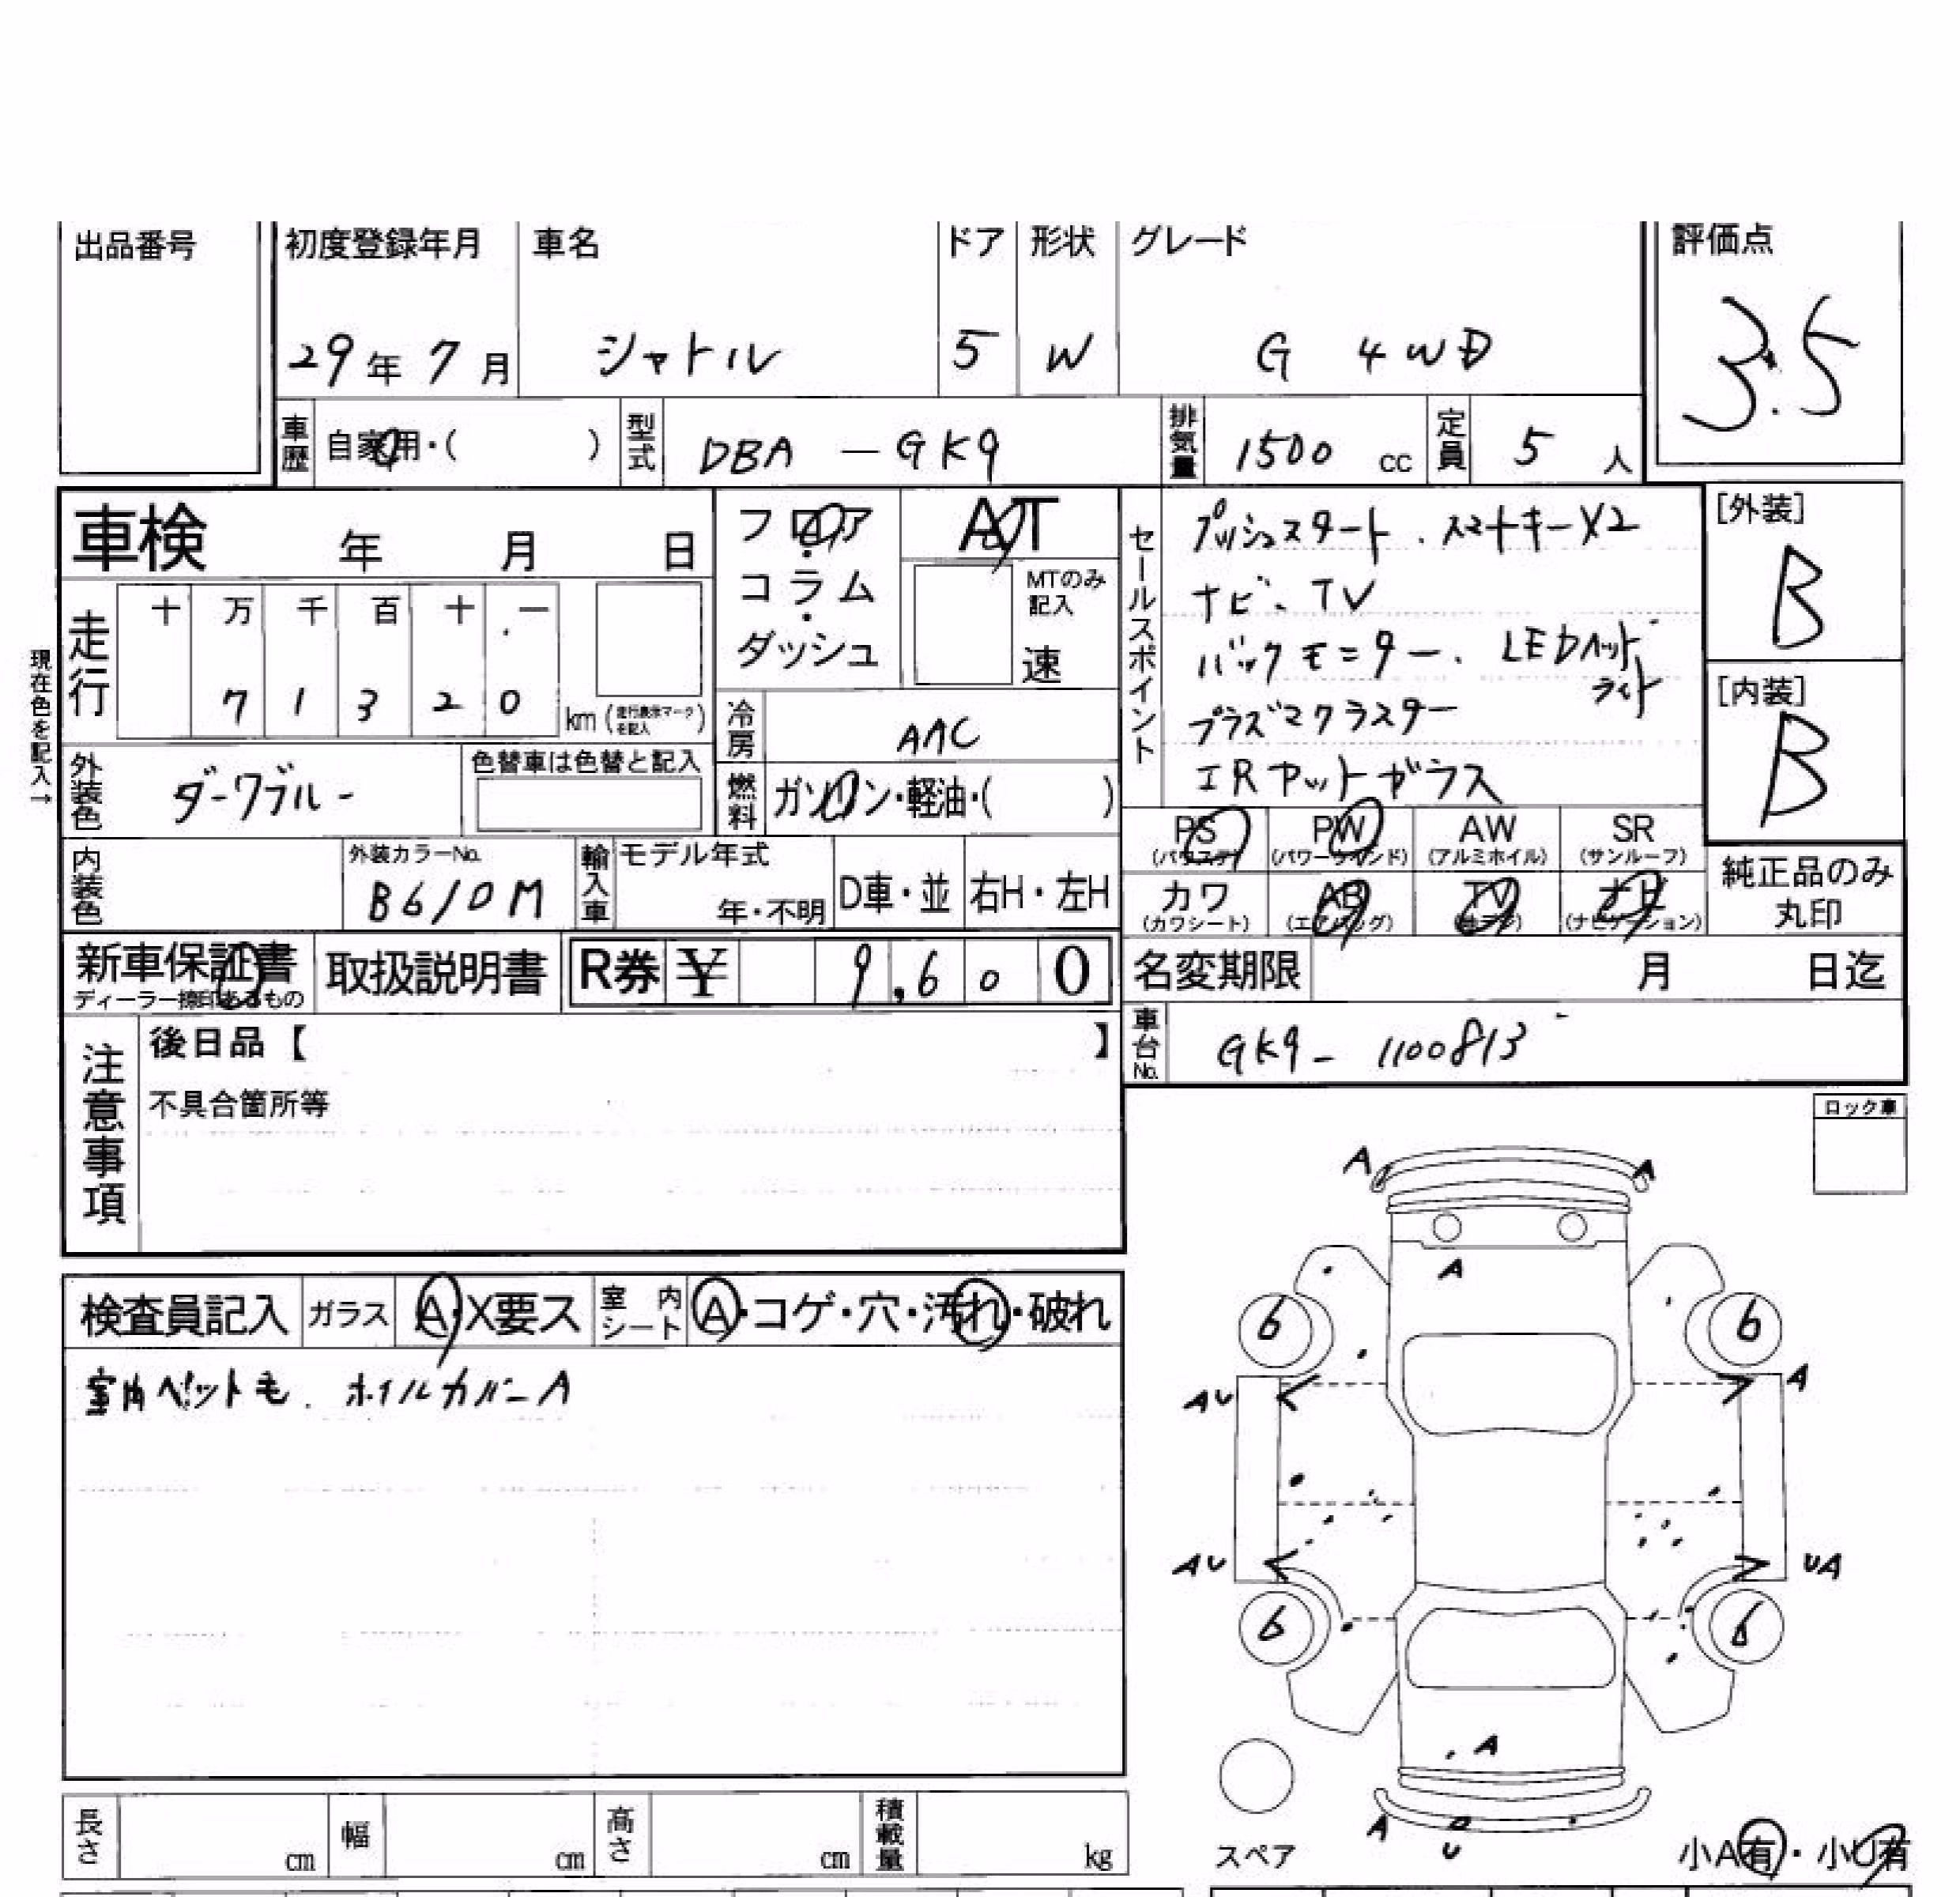 出品番号
初度登録年月 車名 ドア 形状 グレード 評価点
29年7月 シャトル 5 W G 4WD 3.5
車歴 自家用・( ) 型式 DBA-GK9 排気量 1500 cc 定員 5 人
車検 年 月 日
フロア・コラム・ダッシュ
AT
MTのみ記入
速
セールスポイント
プッシュスタート.スマートキーX2
ナビ、TV
バックモニター、LEDヘッドライト
プラズマクラスター
IRカットガラス
[外装]
B
[内装]
B
現在色を記入→
走行 十 万 千 百 十 一
7 1 3 2 0 km(走行表示マークを記入)
冷房 AAC
外装色 ダークブルー 色替車は色替と記入
燃料 ガソリン・軽油・( )
PS (パワステ) PW (パワーウインド) AW (アルミホイル) SR (サンルーフ)
カワ (カワシート) AB (エアバッグ) TV ナビ (ナビゲーション)
純正品のみ丸印
内装色 外装カラーNo. B610M 輸入車 モデル年式 年・不明 D車・並 右H・左H
新車保証書 取扱説明書 R券 ¥ 9,600
ディーラー捺印あるもの
名変期限 月 日迄
車台No. GK9-1100813
注意事項
後日品【 】
不具合箇所等
ロック車
検査員記入 ガラス A・X要ス 室内シート A・コゲ・穴・汚れ・破れ
室内ペット毛. ホイルカバーA
A A
A
6 6
AU A
AU UA
6 6
A
A U
スペア
小A有・小U有
長さ cm 幅 cm 高さ cm 積載量 kg